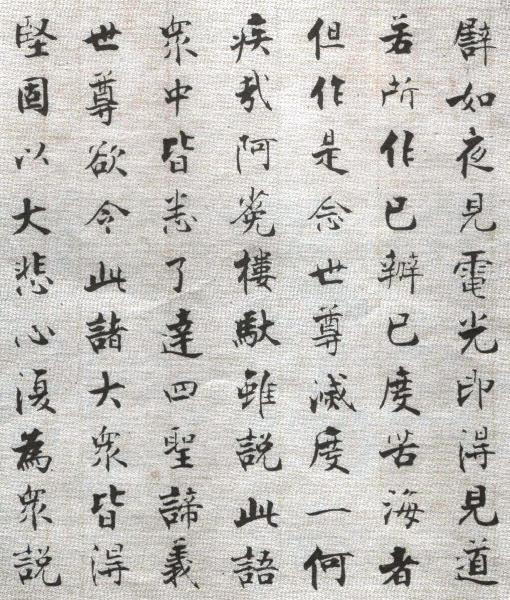 譬如夜見電光即得見道
若所作已辦已度苦海者
但作是念世尊滅度一何
疾哉阿㝹樓馱雖説此語
衆中皆悉了達四聖諦義
世尊欲令此諸大衆皆得
堅固以大悲心復為衆説